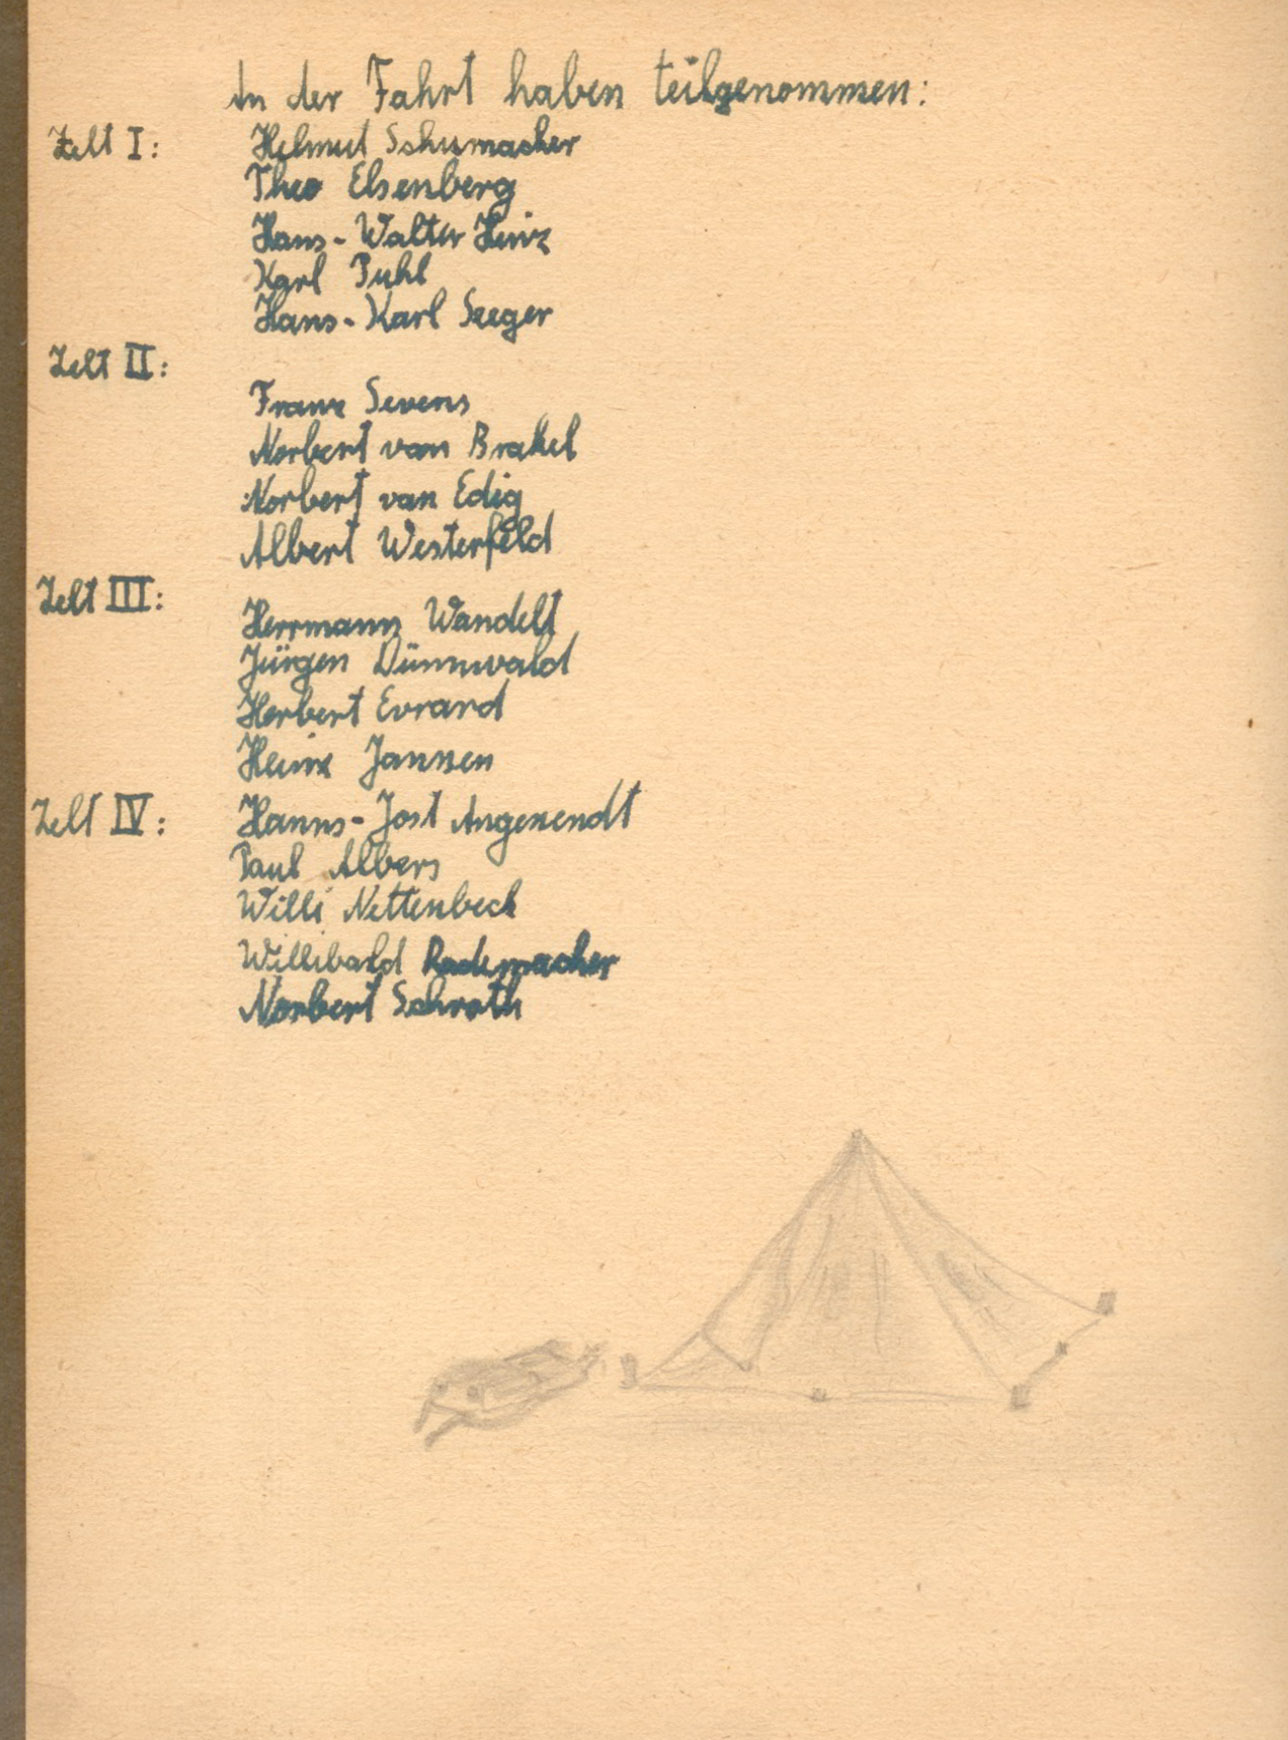 An der Fahrt haben teilgenommen:
Zelt I: Helmut Schumacher
Theo Elsenberg
Hans-Walter Heinz
Karl Puhl
Hans-Karl Seeger
Zelt II:
Franz Sevens
Norbert van Brakel
Norbert van Edig
Albert Westerfeld
Zelt III:
Herrmann Wandelt
Jürgen Dünnwald
Herbert Evrard
Heinz Janssen
Zelt IV: Hanns-Jost Angenendt
Paul Albers
Willi Nettenbeck
Willibald Rademacher
Norbert Schroth